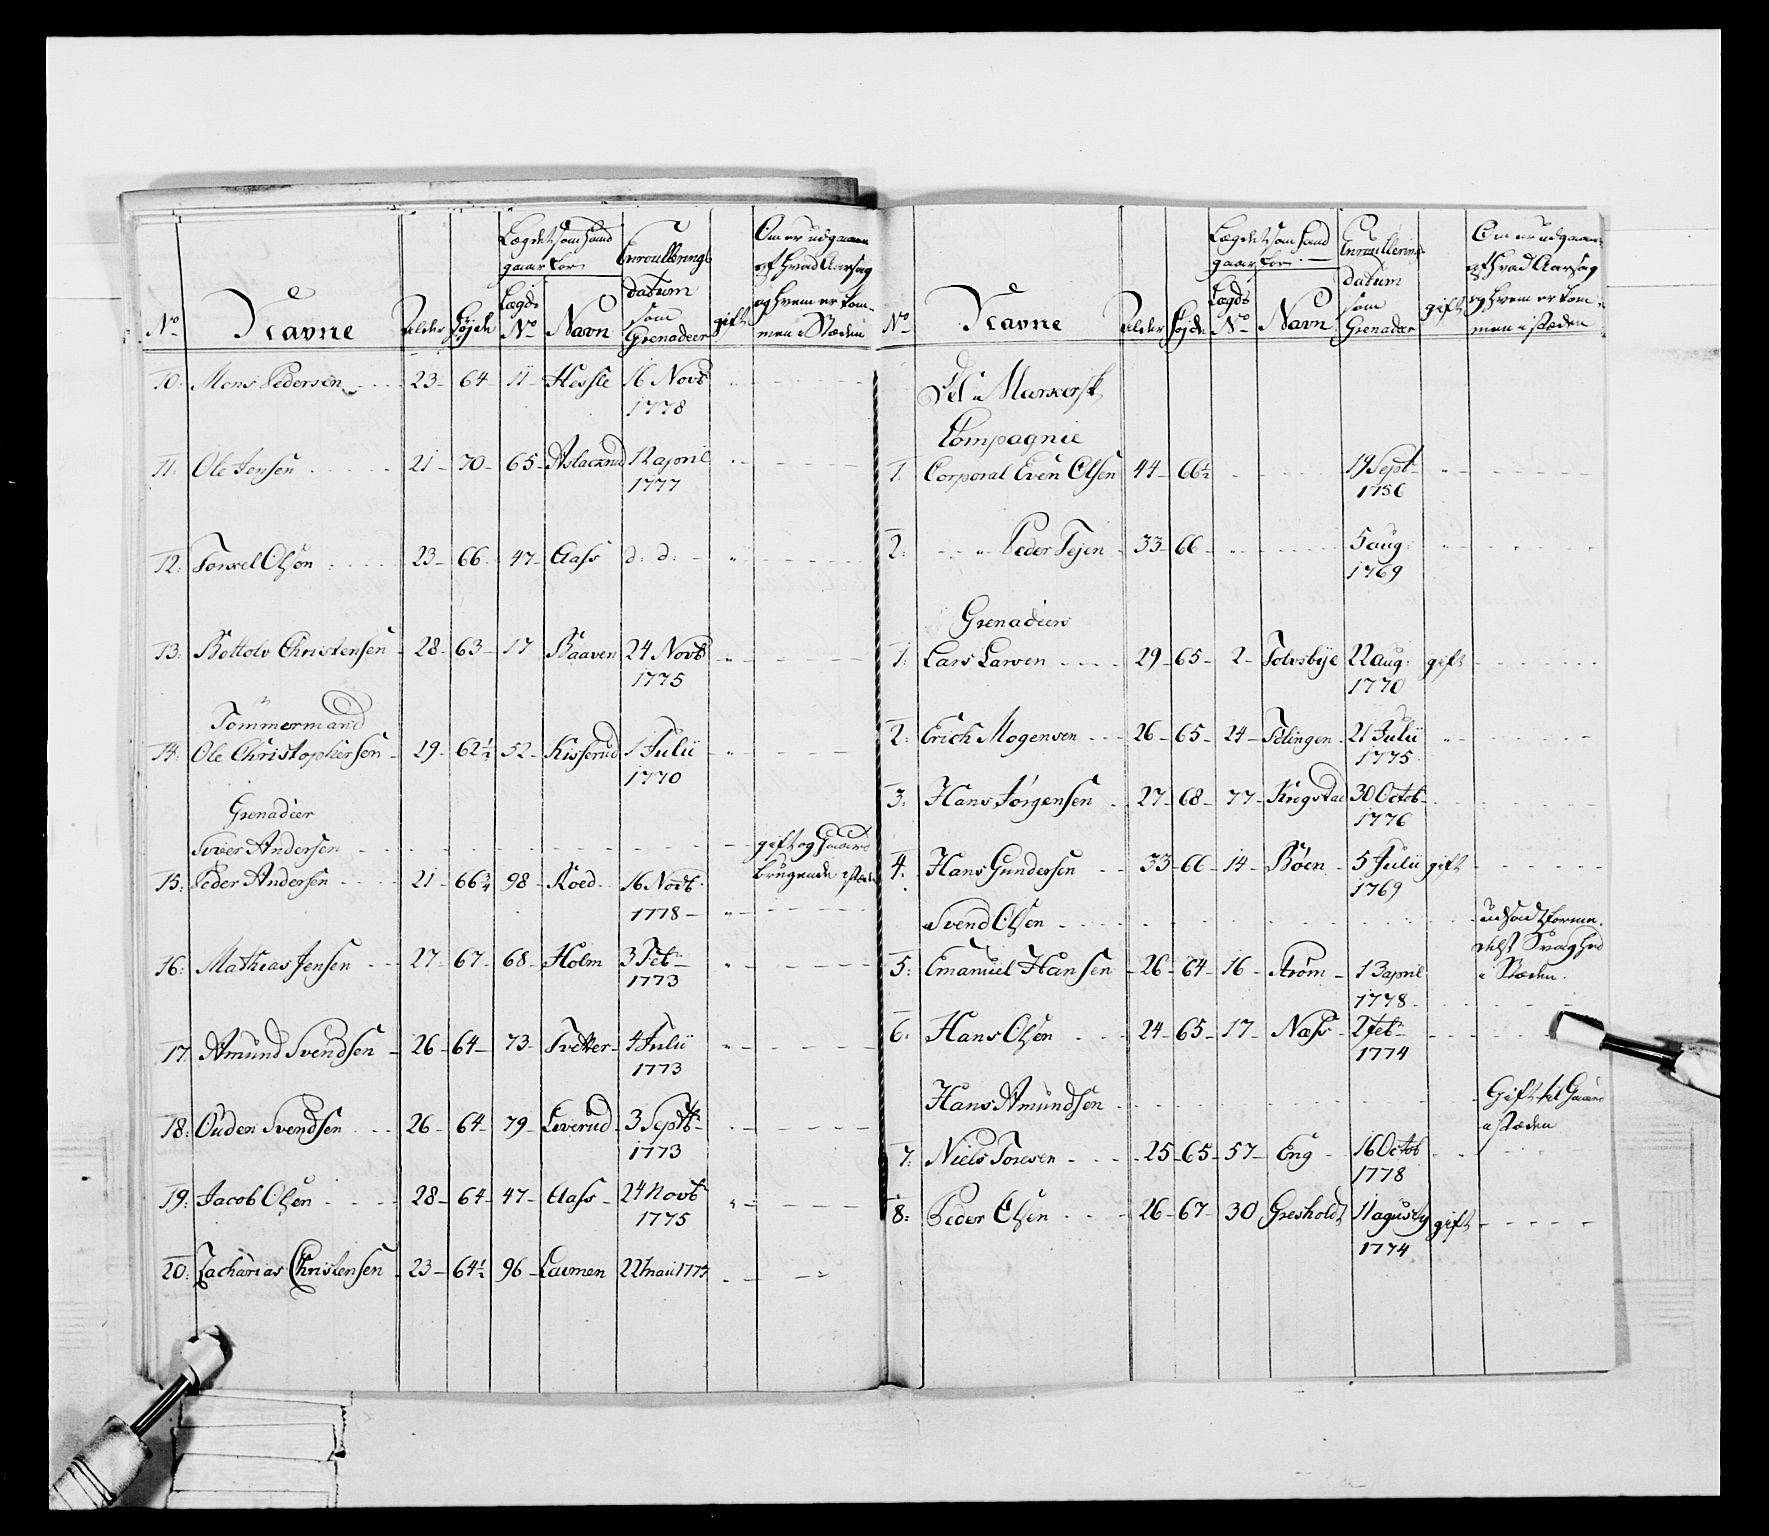 No Navne Alder Højde Lægdet som hand gaar for Lægds No Navn Enroullerings datum som Grenadeer gift Om er udgaaen af hvad Aarsag og hvem er kommen i Stæden
10: Mons Pedersen 23 64 11 Hessle 16 Novb
1778
11. Ole Jensen 21 70 65 Aslacrud 12 april
1777
12: Torkel Olsen 23 66 47 Aass d: d:
13: Bottolv Christensen 28 63 17 Raaven 24 Novb
1775
Tømmermand
14: Ole Christophersen 29 62½ 52 Kisserud 1 Julii
1770
Grenadeer
Siver Andersen gift og Gaard
15: Peder Andersen 21 66¾ 98 Roed 16 Novb. brugende i stæden
1778
16: Mathias Jensen 27 67 68 Holm 3 Feb
1773
17. Amund Svendsen 26 64 73 Tvetter 4 Julii
1773
18: Ouden Svendsen 26 64 79 Leverud 3 Septb
1773
19: Jacob Olsen 28 64 47 Aass 24 Novb
1775
20: Zacharias Christensen 23 64½ 96 Laumen 22 maii 1775
No Navne Alder Højde Lægdet som hand gaar for Lægds No Navn Enroullerings datum som Grenadeer gift Om er udgaaen af hvad Aarsag og hvem er kommen i stæden
Det Markersk
Compagnie
1. Corporal Even Olsen 44 66½ 19 Sept
1756
2: " Peder Tejen 33 66 5 aug:
1769
Grenadeers
1: Lars Larsen 29 65 2 Tolvsbye 22 aug: gift
1770
2: Erich Mogensen 26 65 24 Telingen 21 Julii
1775
3: Hans Jørgensen 27 68 77 Krogstad 30 Octob
1776
4. Hans Gundersen 33 66 14 Bøen 5 Julii gift
1769
Svend Olsen udsadt forme
delst Svaghed
5: Emanuel Hansen 26 64 16 Strøm 13 april i Stæden.
1778
6: Hans Olsen 24 65 17 Næss 2 feb
1774
Hans Amundsen Gift til Gaard
i stæden
7: Niels Toresen 25 65 57 Eng 16 Octob
1778
8: Peder Olsen 26 67 30 Gresholdt 11 agusty gift
1774